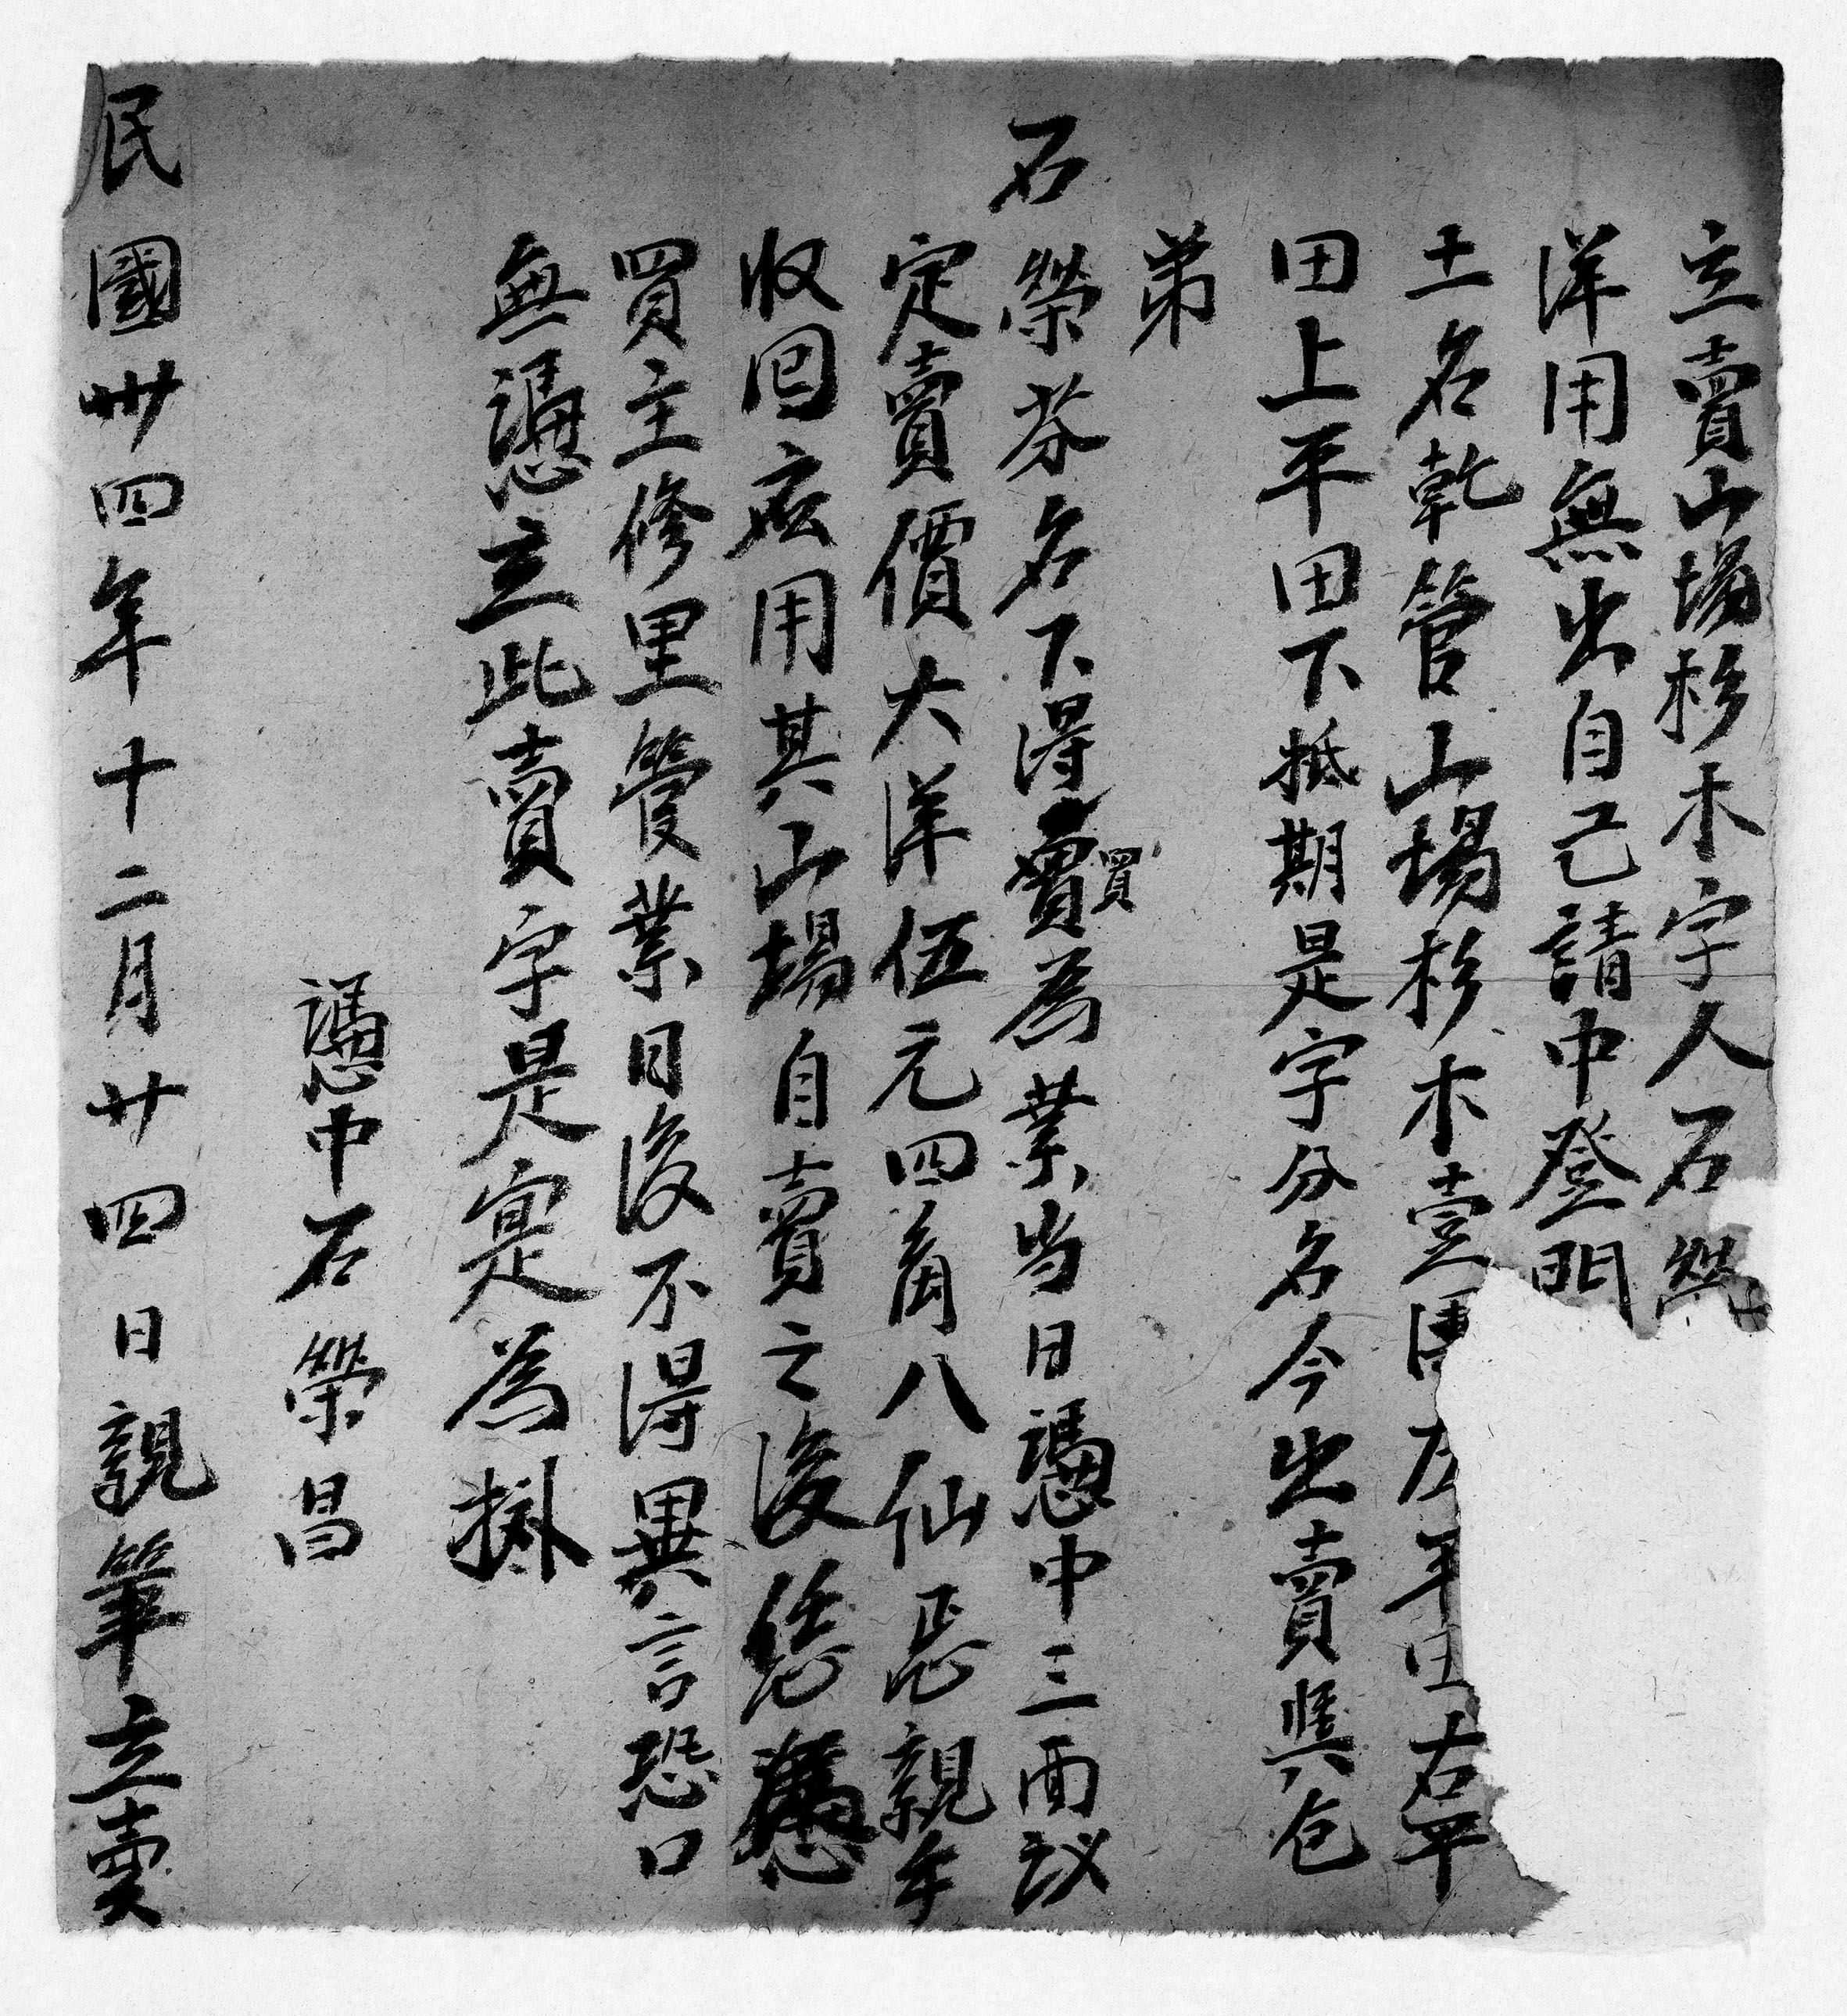 立賣山場杉木字人石
洋用無出自己請中登門
土名乾管山場杉木壹團左平田右平
田上平田下抵期是字分名今出賣與仓
弟
石榮芬名下得買為業当日憑中三面议
定賣價大洋伍元四角八仙正親手
收回应用其山場自賣之後恁憑
買主修里管業日後不得異言恐口
無憑立此賣字是寔為㨿
憑中石榮昌
民國卅四年十二月廿四日親筆立賣